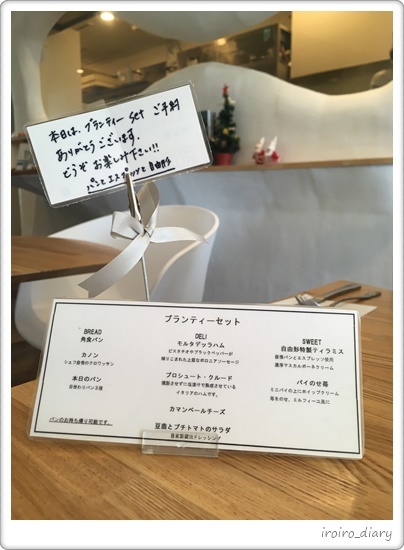 本日は、ブランティー set ご予約
ありがとうございます。
どうぞ お楽しみ下さい!!
パンとエスプレッソと自由形
ブランティーセット
BREAD
角食パン
カノン
シェフ自慢のクロワッサン
本日のパン
日替わりパン3種
パンのお持ち帰り可能です。
DELI
モルタデッラハム
ピスタチオやブラックペッパーが
練りこまれた上質なボロニアソーセージ
プロシュート・クルード
燻製させずに塩漬けで熟成させている
イタリアのハムです。
カマンベールチーズ
豆苗とプチトマトのサラダ
自家製醤油ドレッシング
SWEET
自由形特製ティラミス
自慢パンとエスプレッソ使用
濃厚マスカルポーネクリーム
パイのせ苺
ミニパイの上にホイップクリーム
苺をのせ、ミルフィーユ風に
iroiro_diary